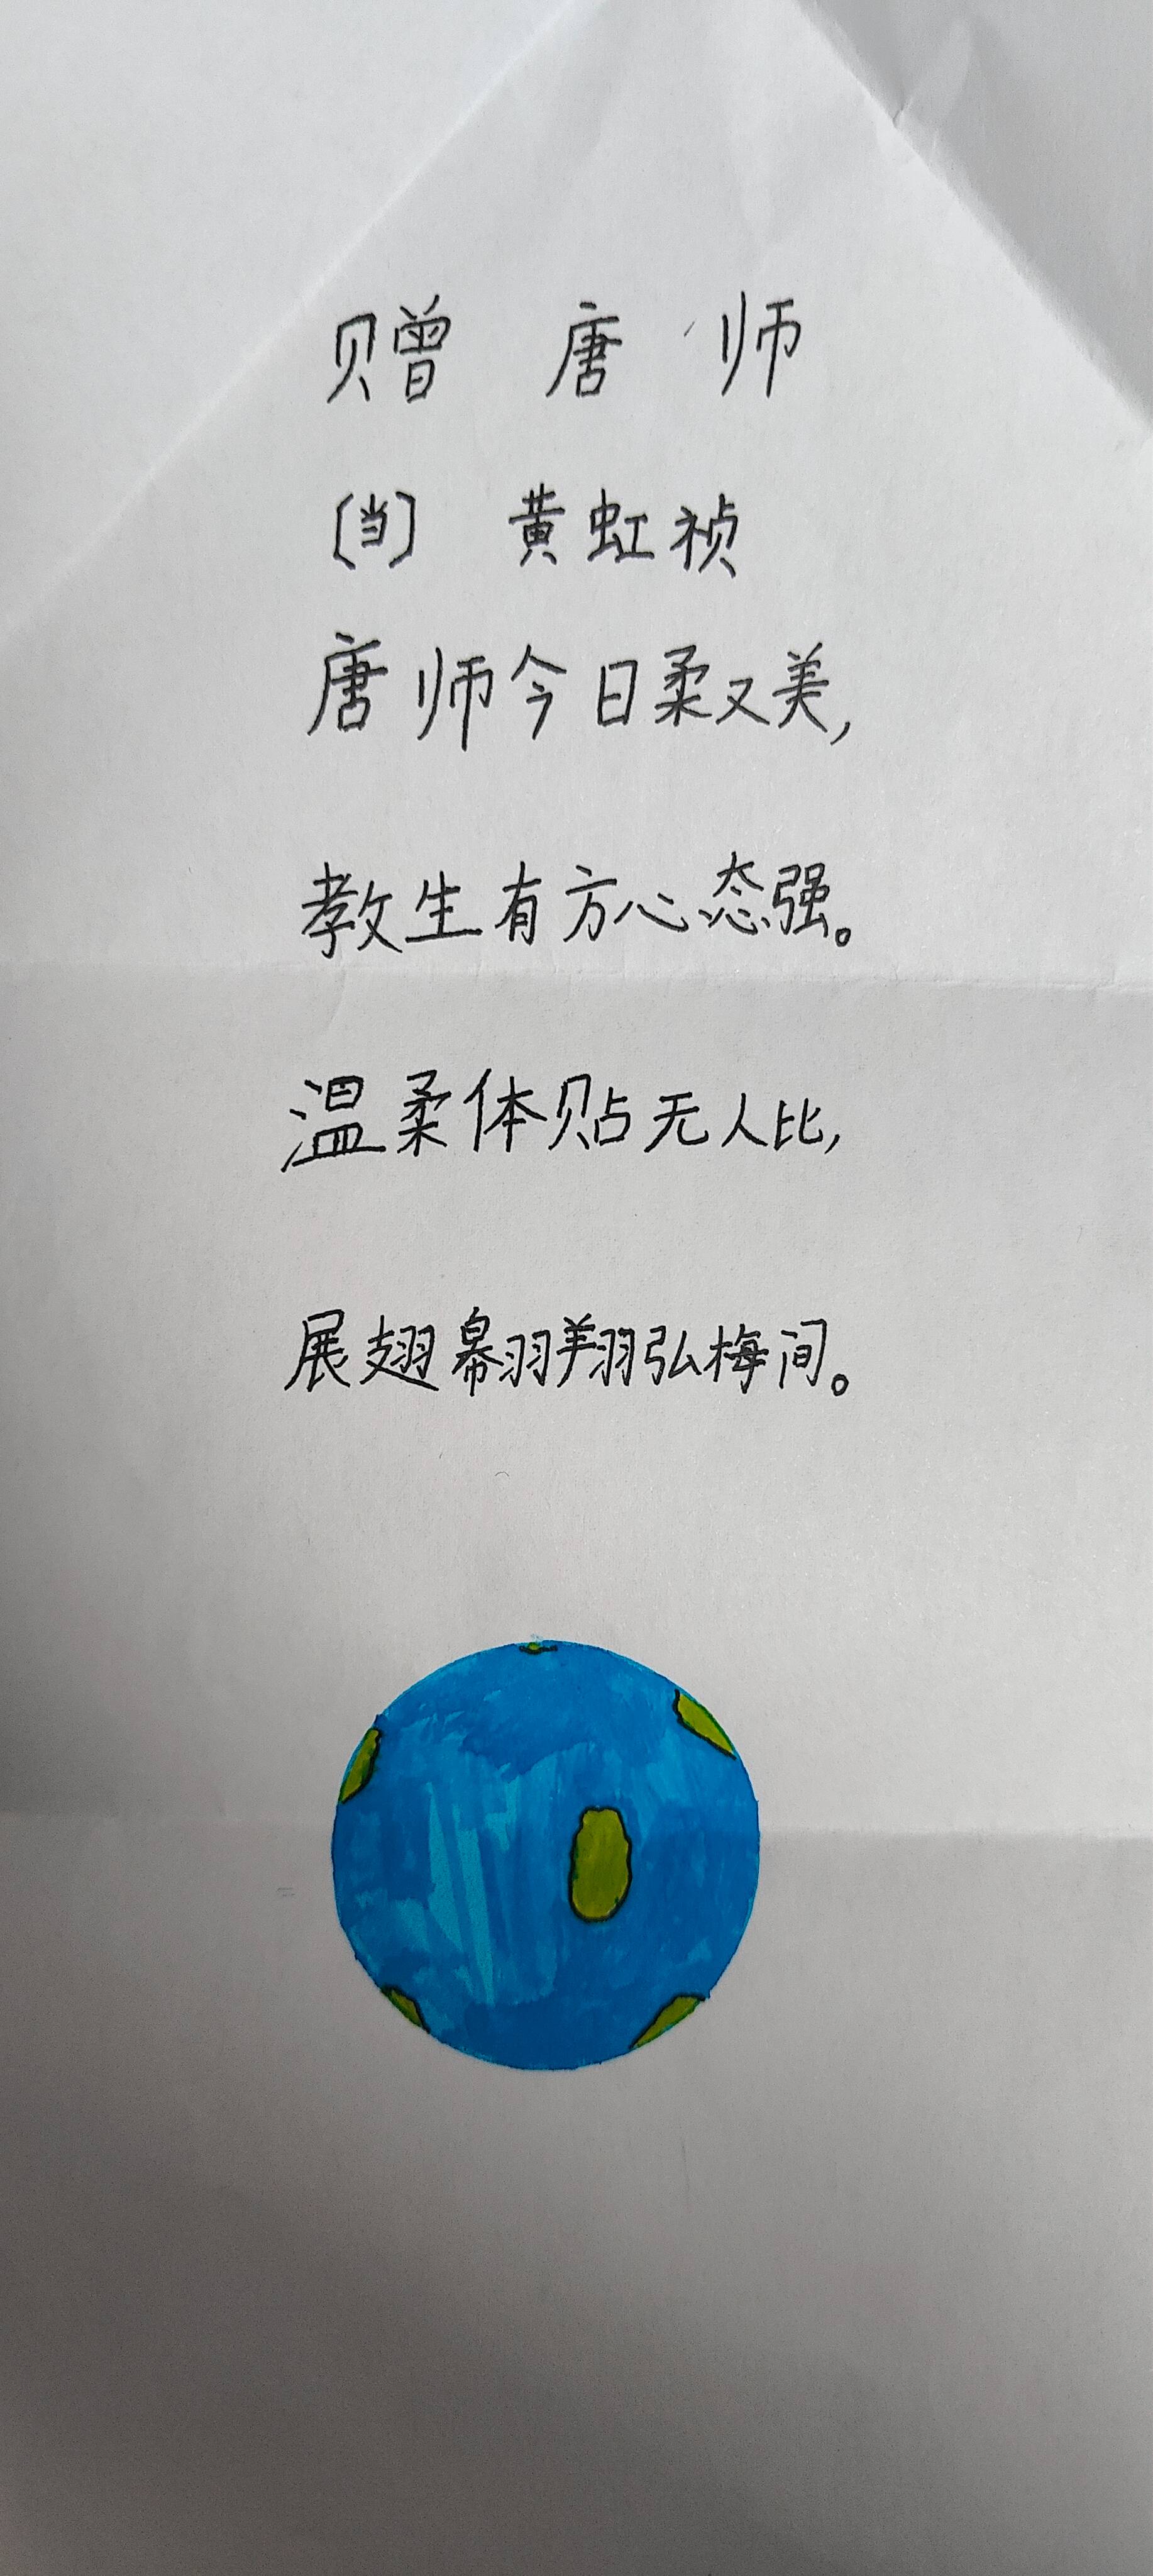 赠 唐 师
〔当〕 黄虹祯
唐师今日柔又美,
教生有方心态强。
温柔体贴无人比,
展翅翱翔弘梅间。